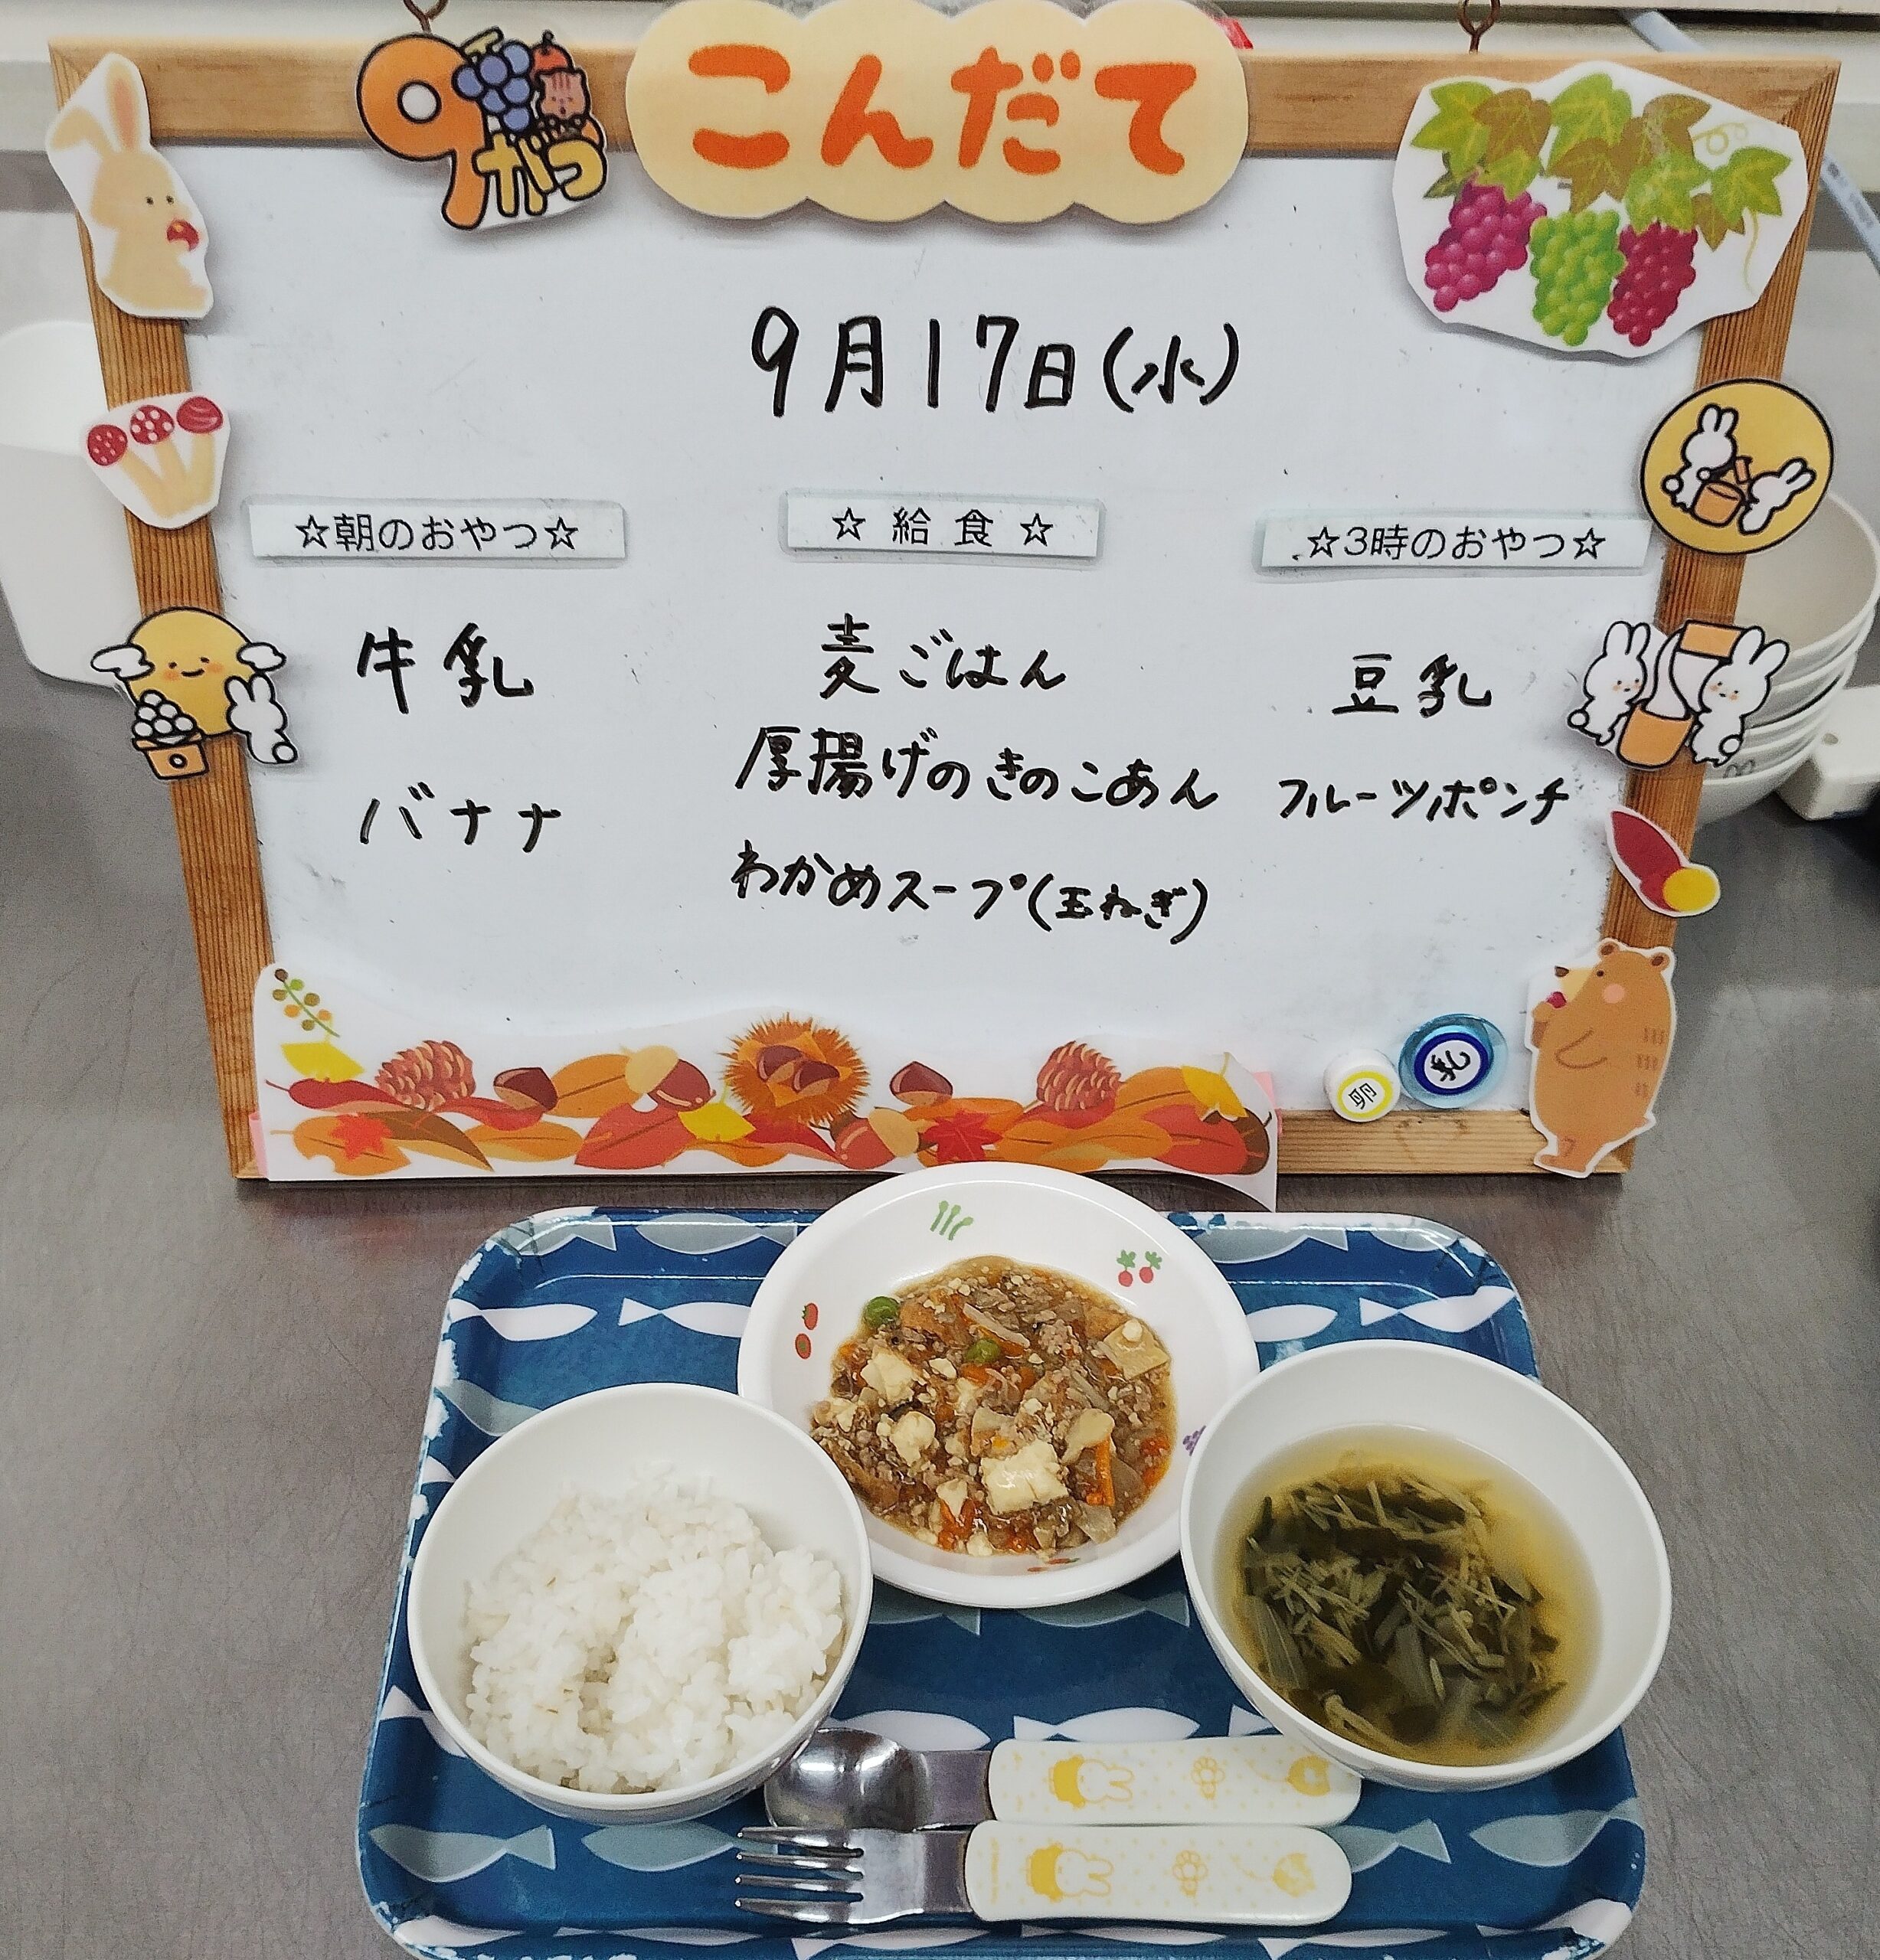 9がつ
こんだて
9月17日(水)
☆朝のおやつ☆
牛乳
バナナ
☆給食☆
麦ごはん
厚揚げのきのこあん
わかめスープ(玉ねぎ)
☆3時のおやつ☆
豆乳
フルーツポンチ
卵
乳